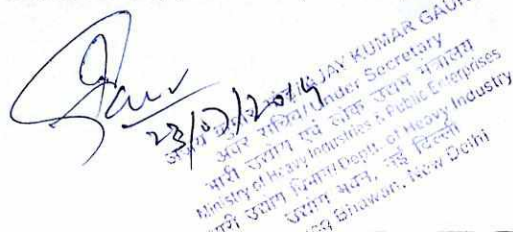 Gaur
23/07/2014
अजय कुमार गौड़/AJAY KUMAR GAUR
अवर सचिव/Under Secretary
भारी उद्योग एवं लोक उद्यम मंत्रालय
Ministry of Heavy Industries & Public Enterprises
भारी उद्योग विभाग/Deptt. of Heavy Industry
उद्योग भवन, नई दिल्ली
Bhawan, New Delhi